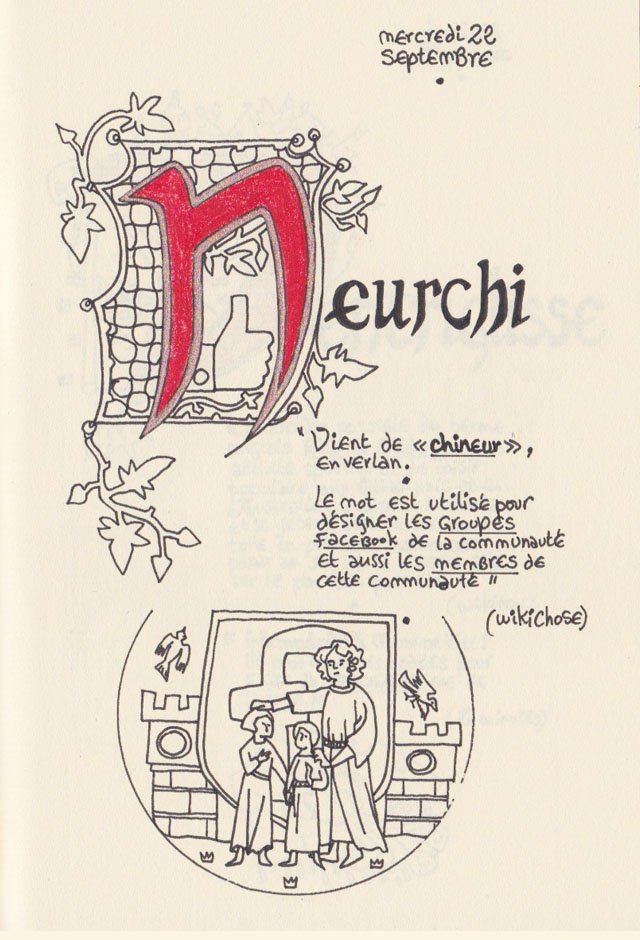 mercredi 22
septembre
Neurchi
"Vient de «chineur»,
en verlan.
Le mot est utilisé pour
désigner les Groupes
Facebook de la communauté
et aussi les membres de
cette communauté"
(wikichose)